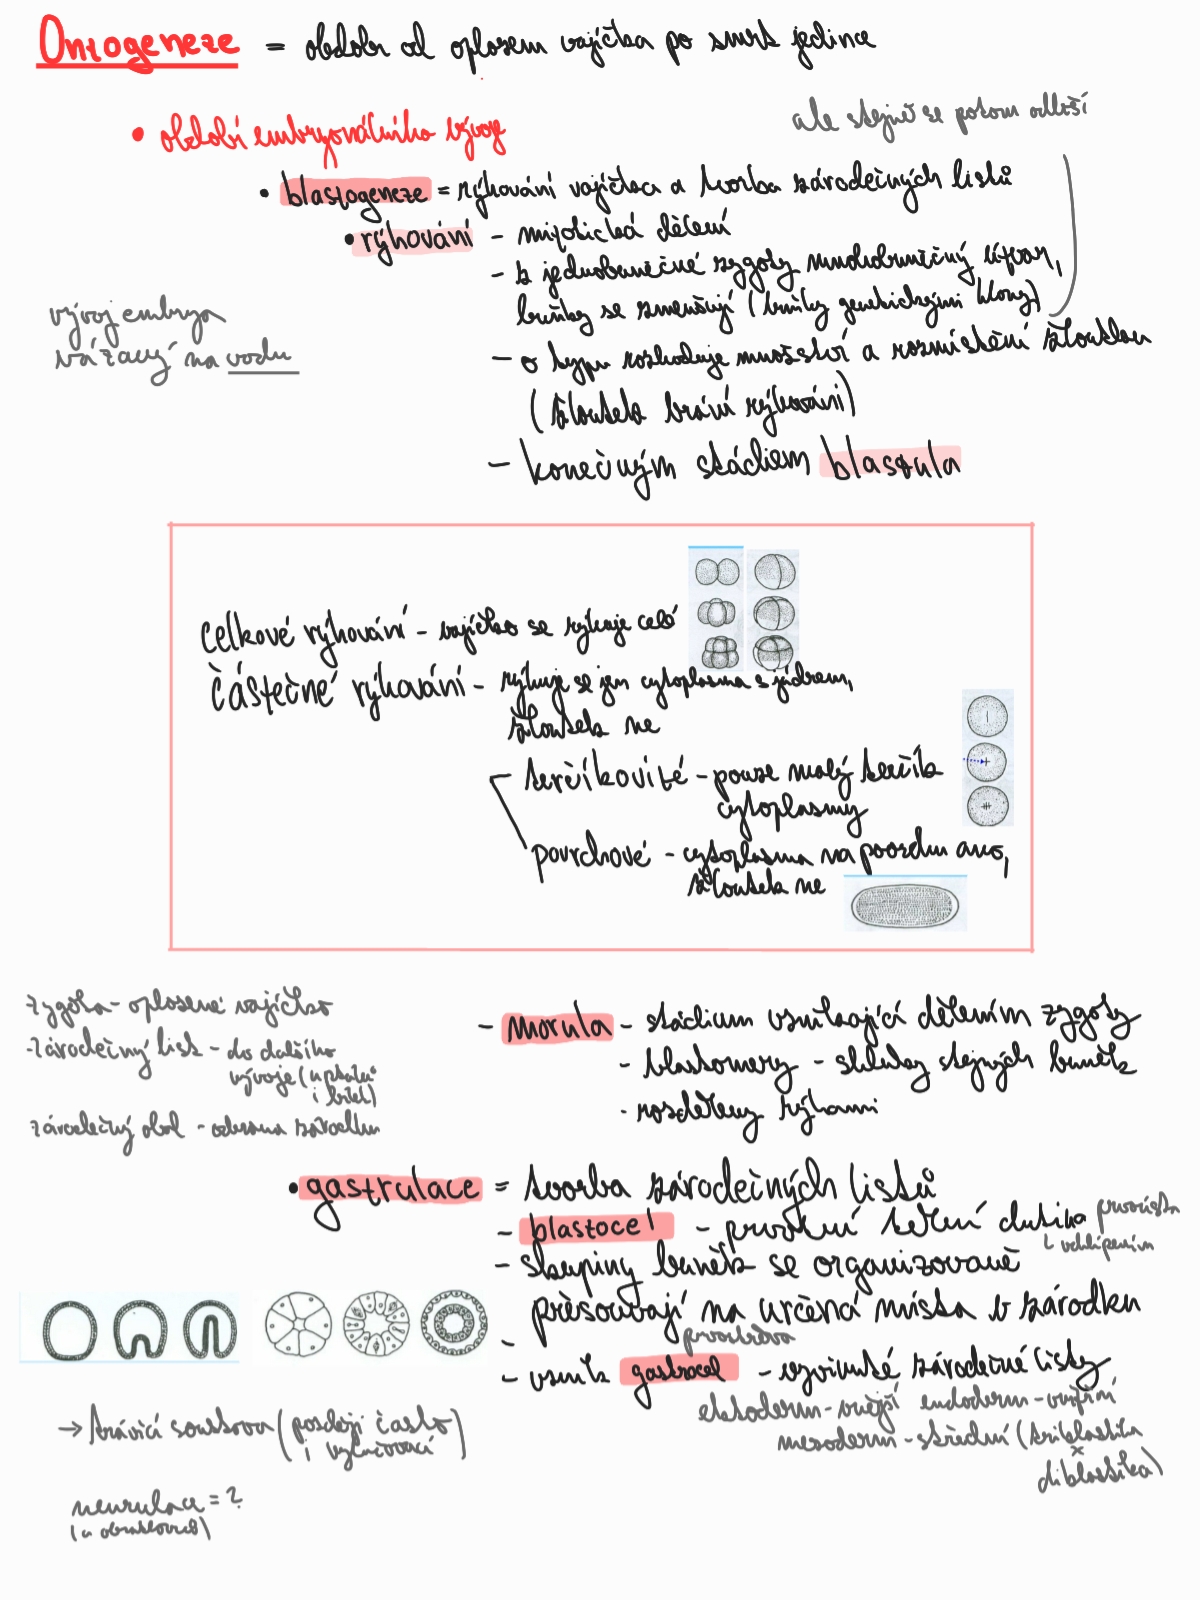 Ontogeneze = období od oplození vajíčka po smrt jedince
ale stejně se potom odliší
• období embryonálního vývoje
• blastogeneze = rýhování vajíčka a tvorba zárodečných listů
• rýhování - mitotická dělení
- z jednobuněčné zygoty mnohobuněčný útvar,
buňky se zmenšují (buňky genetickými klony)
vývoj embrya
vázaný na vodu
- o typu rozhoduje množství a rozmístění žloutku
(žloutek brání rýhování)
- konečným stádiem blastula
celkové rýhování - vajíčko se rýhuje celé
částečné rýhování - rýhuje se jen cytoplasma s jádrem,
žloutek ne
terčíkovité - pouze malý terčík
cytoplasmy
povrchové - cytoplasma na povrchu ano,
žloutek ne
zygota - oplozené vajíčko
- zárodečný list - do dalšího
vývoje (u ptáků
zárodečný obal - ochrana zárodku
- morula - stádium vznikající dělením zygoty
- blastomery - shluky stejných buněk
- rozděleny rýhami
• gastrulace = tvorba zárodečných listů
- blastocel - prvotní tělní dutina prvoústa
vchlípením
- skupiny buněk se organizovaně
přesouvají na určená místa v zárodku
-
prvostřeva
- vznik gastrocel - vyvinuté zárodečné listy
ektoderm - vnější endoderm - vnitřní
mezoderm - střední (triblastika
x
diblastika)
→ trávicí soustava (později často
i vylučovací)
neurulace = ?
(u obratlovců)